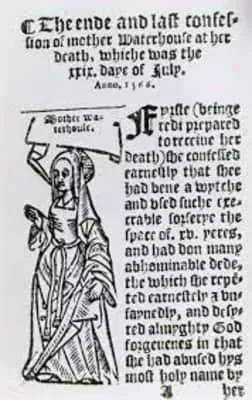 ¶The ende and last confes-
sion of mother Waterhouse at her
death, whiche was the
xxix. daye of July.
Anno. 1566.
Mother wa-
terhouse.
Fyrste (beinge
redi prepared
to receiue her
death) she confessed
earnestly that shee
had bene a wytche
and vsed suche exe-
crable sorserye the
space of. xv. yeres,
and had don many
abhominable dede,
the which she repē-
ted earnestely & vn-
faynedly, and desy-
red almyghty God
forgeuenes in that
she had abused hys
most holy name by
A her